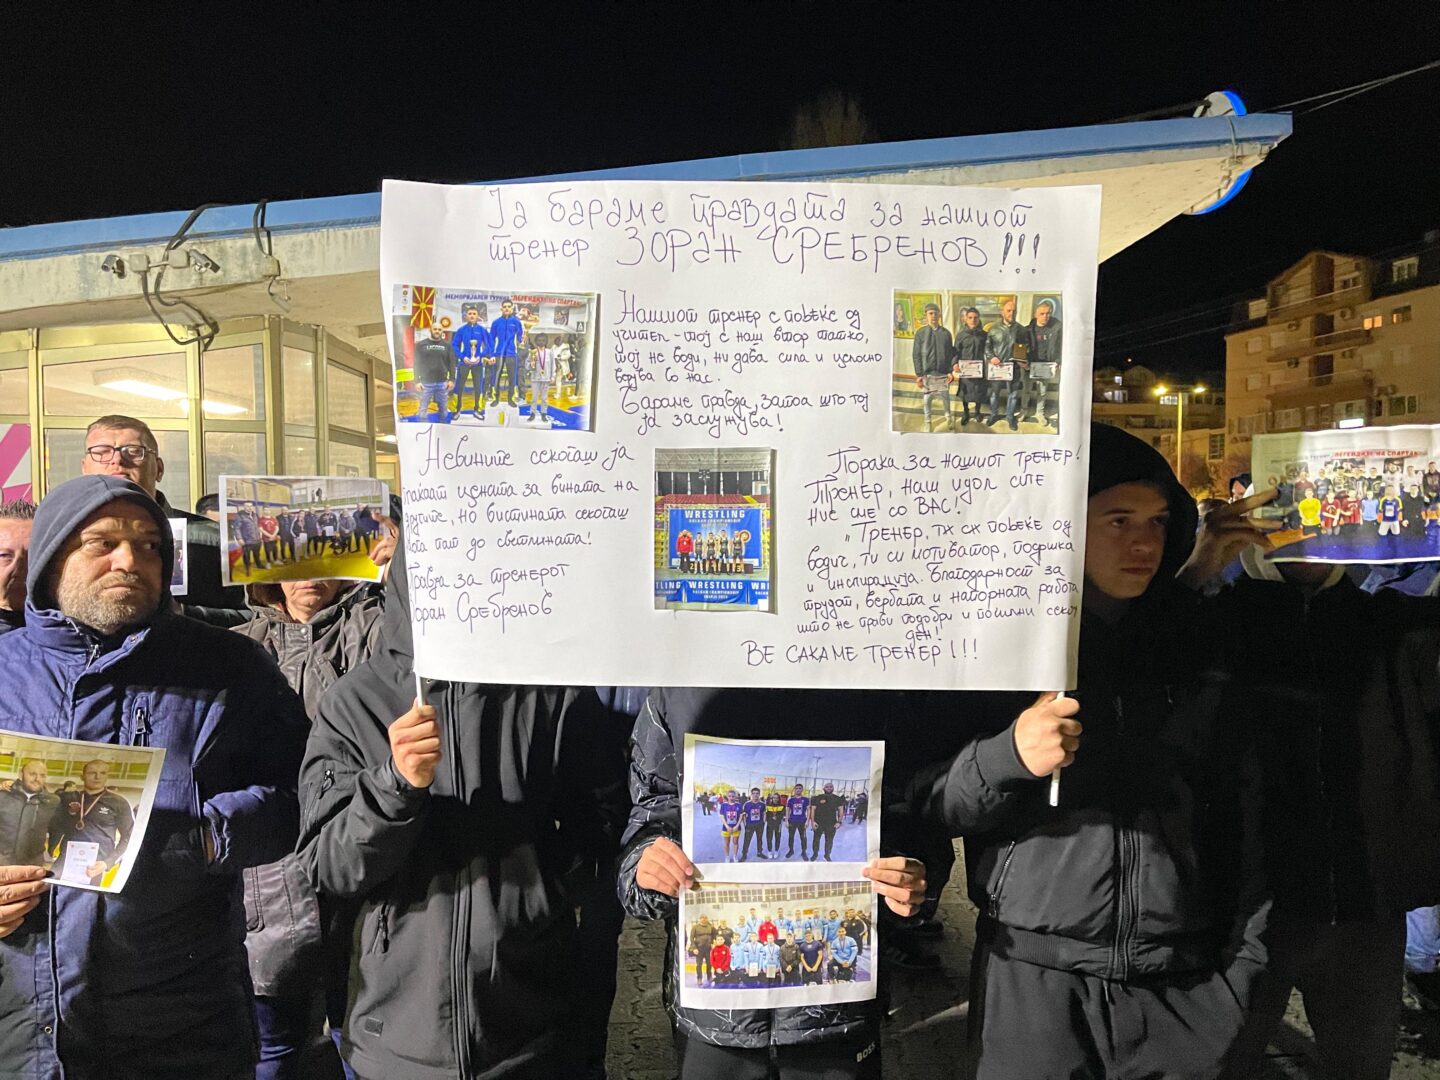 Ја бараме правдата за нашиот
тренер ЗОРАН СРЕБРЕНОВ!!!
МЕМОРИЈАЛЕН ТУРНИР "ЛЕГЕНДИ НА СПАРТАК"
Нашиот тренер е повеќе од
учител - тој е наш втор татко,
тој не води, ни дава сила и целосно
верува во нас.
Бараме правда, затоа што тој
ја заслужува!
Невините секогаш ја
плаќаат цената за вината на
другите, но вистината секогаш
пат до светлината!
Правда за тренерот
Зоран Сребренов
WRESTLING
BALKAN CHAMPIONSHIP
WRESTLING
WRESTLING
BALKAN CHAMPIONSHIP
Порака за нашиот тренер!
Тренер, наш идол сте
ние сме со ВАС!
"Тренер, ти си повеќе од
водич, ти си мотиватор, подршка
и инспирација. Благодарност за
трудот, вербата и напорната работа
што не прави подобри и посилни секој
ден!
ВЕ САКАМЕ ТРЕНЕР!!!
"ЛЕГЕНДИ НА СПАРТАК"
BOSS